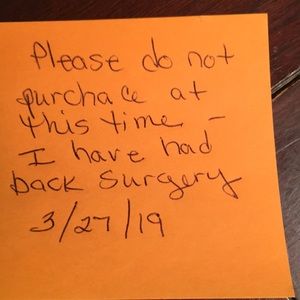 Please do not
purchace at
this time -
I have had
back surgery
3/27/19